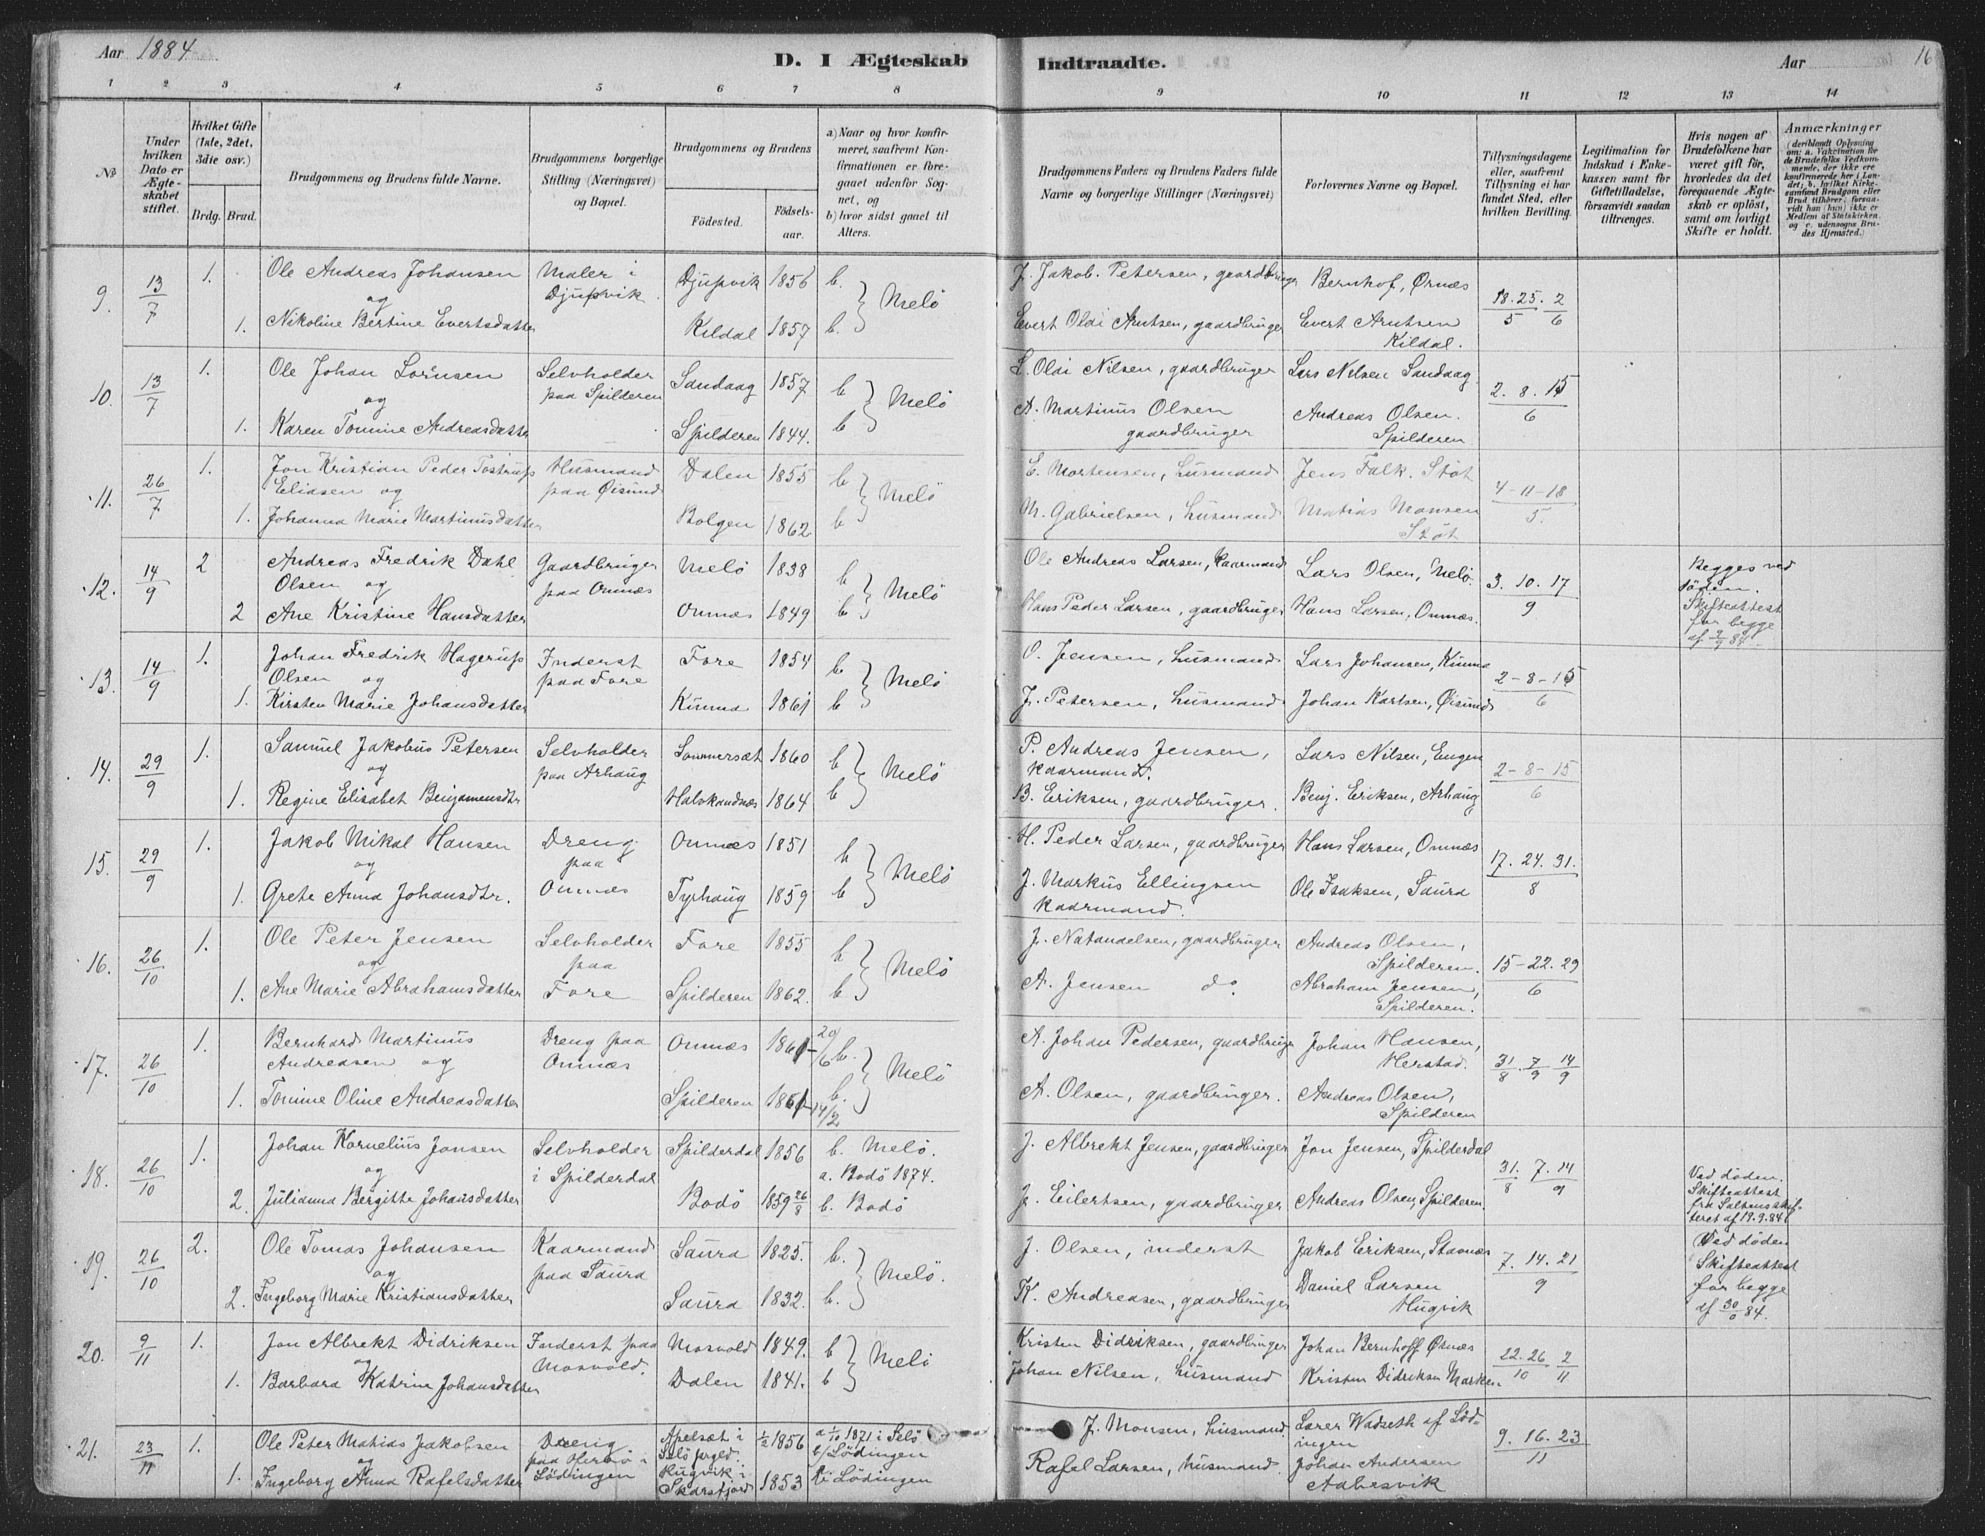 Aar 1884
D. I Ægteskab Indtraadte.
Aar
16
1 2 3 4 5 6 7 8 9 10 11 12 13 14
No
Under hvilken Dato er Ægteskabet stiftet.
Hvilket Gifte (1ste, 2det, 3die osv.)
Brdg. Brud.
Brudgommens og Brudens fulde Navne.
Brudgommens borgerlige Stilling (Næringsvei) og Bopæl.
Brudgommens og Brudens
Fødested.
Fødselsaar.
a) Naar og hvor konfirmeret, saafremt Konfirmationen er foregaaet udenfor Sognet, og
b) hvor sidst gaaet til Alters.
Brudgommens Faders og Brudens Faders fulde Navne og borgerlige Stillinger (Næringsvei)
Forlovernes Navne og Bopæl.
Tillysningsdagene eller, saafremt Tillysning ei har fundet Sted, efter hvilken Bevilling.
Legitimation for Indskud i Enkekassen samt for Giftetilladelse, forsaavidt saadan tiltrænges.
Hvis nogen af Brudefolkene har været gift før, hvorledes da det foregaaende Ægteskab er opløst, samt om lovligt Skifte er holdt.
Anmærkninger (deriblandt Oplysning om: a. Vakcination for de Brudefolks Vedkommende, der ikke ere konfirmerede her i Landet; b. hvilket Kirkesamfund Brudgom eller Brud tilhører, forsaavidt han (hun) ikke er Medlem af Statskirken, og c. udensogns Brudes Hjemsted.)
9. 13/7 1. Ole Andreas Johansen Maler i Djupvik 1856 b. J. Jakob. Petersen, gaardbruger Bernhof, Ørnæs 18.25. 2
og Djupvik. Melö 5 6
1. Nikoline Bertine Evertsdatter Kildal 1857 b. Evert Oldi Arntsen, gaardbruger Evert Arntsen
Kildal.
10. 13/7 1. Ole Johan Lorensen Selvholder Sandaag 1857 b L. Olai Nilsen, gaardbruger Lars Nilsen Sandaag 2. 8. 15
og paa Spilderen Melö 6
1. Karen Tomine Andreasdatter Spilderen 1844. b A. Martinus Olsen Andreas Olsen.
gaardbruger Spilderen
11. 26/7 1. Jon Kristian Peder Tostrups Husmand Dalen 1855 b E. Mortensen, husmand Jens Falk. Støt
Eliasen og paa Øisund Melö 4-11-18
1. Johanna Marie Martinusdatter Bolgen 1862. b M. Gabrielsen, husmand Matias Monsen 5.
Støt
12. 14/9 2 Andreas Fredrik Dahl Gaardbruger Melö 1838 b Ole Andreas Larsen, kaarmand Lars Olsen, Melö. 3. 10. 17 Begges ved
Olsen og paa Onnæs Melö 9 döden.
2 Ane Kristine Hansdatter Onnæs 1849 b Hans Peder Larsen, gaardbruger Hans Larsen, Onnæs. Skifteattest
for begge
af 2/9 84.
13. 14/9 1. Johan Fredrik Hagerups Inderst Fore 1854 b O. Jensen, husmand Lars Johansen, Kunna 2-8-15
Olsen og paa Fore Melö 6
1. Kirsten Marie Johansdatter Kunna 1861 b J. Petersen, husmand Johan Karlsen, Øisund
14. 29/9 1. Samuel Jakobus Petersen Selvholder Sommersæt 1860 b P. Andreas Jensen, Lars Nilsen, Engen
og paa Arhaug Melö kaarmand. 2-8-15
1. Regine Elisabet Benjamensdtr Halskandnæs 1864 b B. Eriksen, gaardbruger. Benj. Eriksen, Arhaug 6
15. 29/9 1. Jakob Mikal Hansen Dreng Onnæs 1851 b H. Peder Larsen, gaardbruger Hans Larsen, Onnæs
og paa Melö 17. 24. 31.
1. Grete Anna Johansdtr. Onnæs Tyrhaug 1859 b J. Markus Ellingsen Ole Isaksen, Saura 8
kaarmand.
16. 26/10 1. Ole Peter Jensen Selvholder Fore 1855 b J. Natanaelsen, gaardbruger Andreas Olsen,
og paa Melö Spilderen. 15-22.29
1. Ane Marie Abrahamsdatter Fore Spilderen 1862. b A. Jensen do Abraham Jensen, 6
Spilderen.
17. 26/10 1. Bernhard Martinus Dreng paa Onnæs 1861 20/6 b. A. Johan Pedersen, gaardbruger Johan Hansen,
Andreasen og Onnæs Melö Herstad. 31/8. 7/9 14/9
1. Tomine Oline Andreasdatter Spilderen 1861 b. 14/2 A. Olsen, gaardbruger. Andreas Olsen,
Spilderen
18. 26/10 1. Johan Kornelius Jonsen Selvholder Spilderdal 1856 b. Melö. J. Albrekt Jensen, gaardbruger Jon Jensen, Spilderdal 31. 7. 14
og i Spilderdal a. Bodö 1874. 8 9 Ved döden.
2. Julianna Bergitte Johansdatter Bodö 1859 26/8 b. Bodö J. Eilertsen, gaardbruger Andreas Olsen, Spilderen Skifteattest
fra Saltens skifteret af 19.9.84
19. 26/10 2. Ole Tomas Johansen Kaarmand Saura 1825. b. J. Olsen, inderst Jakob Eriksen, Stavnæs Ved döden
og paa Saura Melö. 7. 14. 21 Skifteattest
2. Ingeborg Marie Kristiansdatter Saura 1832. b. K. Andreasen, gaardbruger Daniel Larsen 9 for begge
Hugvik af 30/8 84.
20. 9/11 1. Jon Albrekt Didriksen Inderst paa Mosvold 1849. b Kristen Didriksen, gaardbruger Johan Bernhoff Ørnæs 22.26 2
og Mosvold. Melö 10 11
1. Barbara Katrine Johansdatter Dalen 1841. b Johan Nilsen, husmand Kristen Didriksen Marken
21. 23/11 1. Ole Peter Matias Jakobsen Dreng Apelsæt i 1/2 1856 a 1/10 1871 i Selö J. Monsen, husmand Lærer Wadseth af Lödingen 9. 16. 23
og paa Selö prgld. b/ Lödingen 11
1. Ingeborg Anna Rafelsdatter Lödingen Hugvik i Skarsfjord 1853 b i Lödingen Rafel Larsen, husmand Johan Andersen
Aabesvik